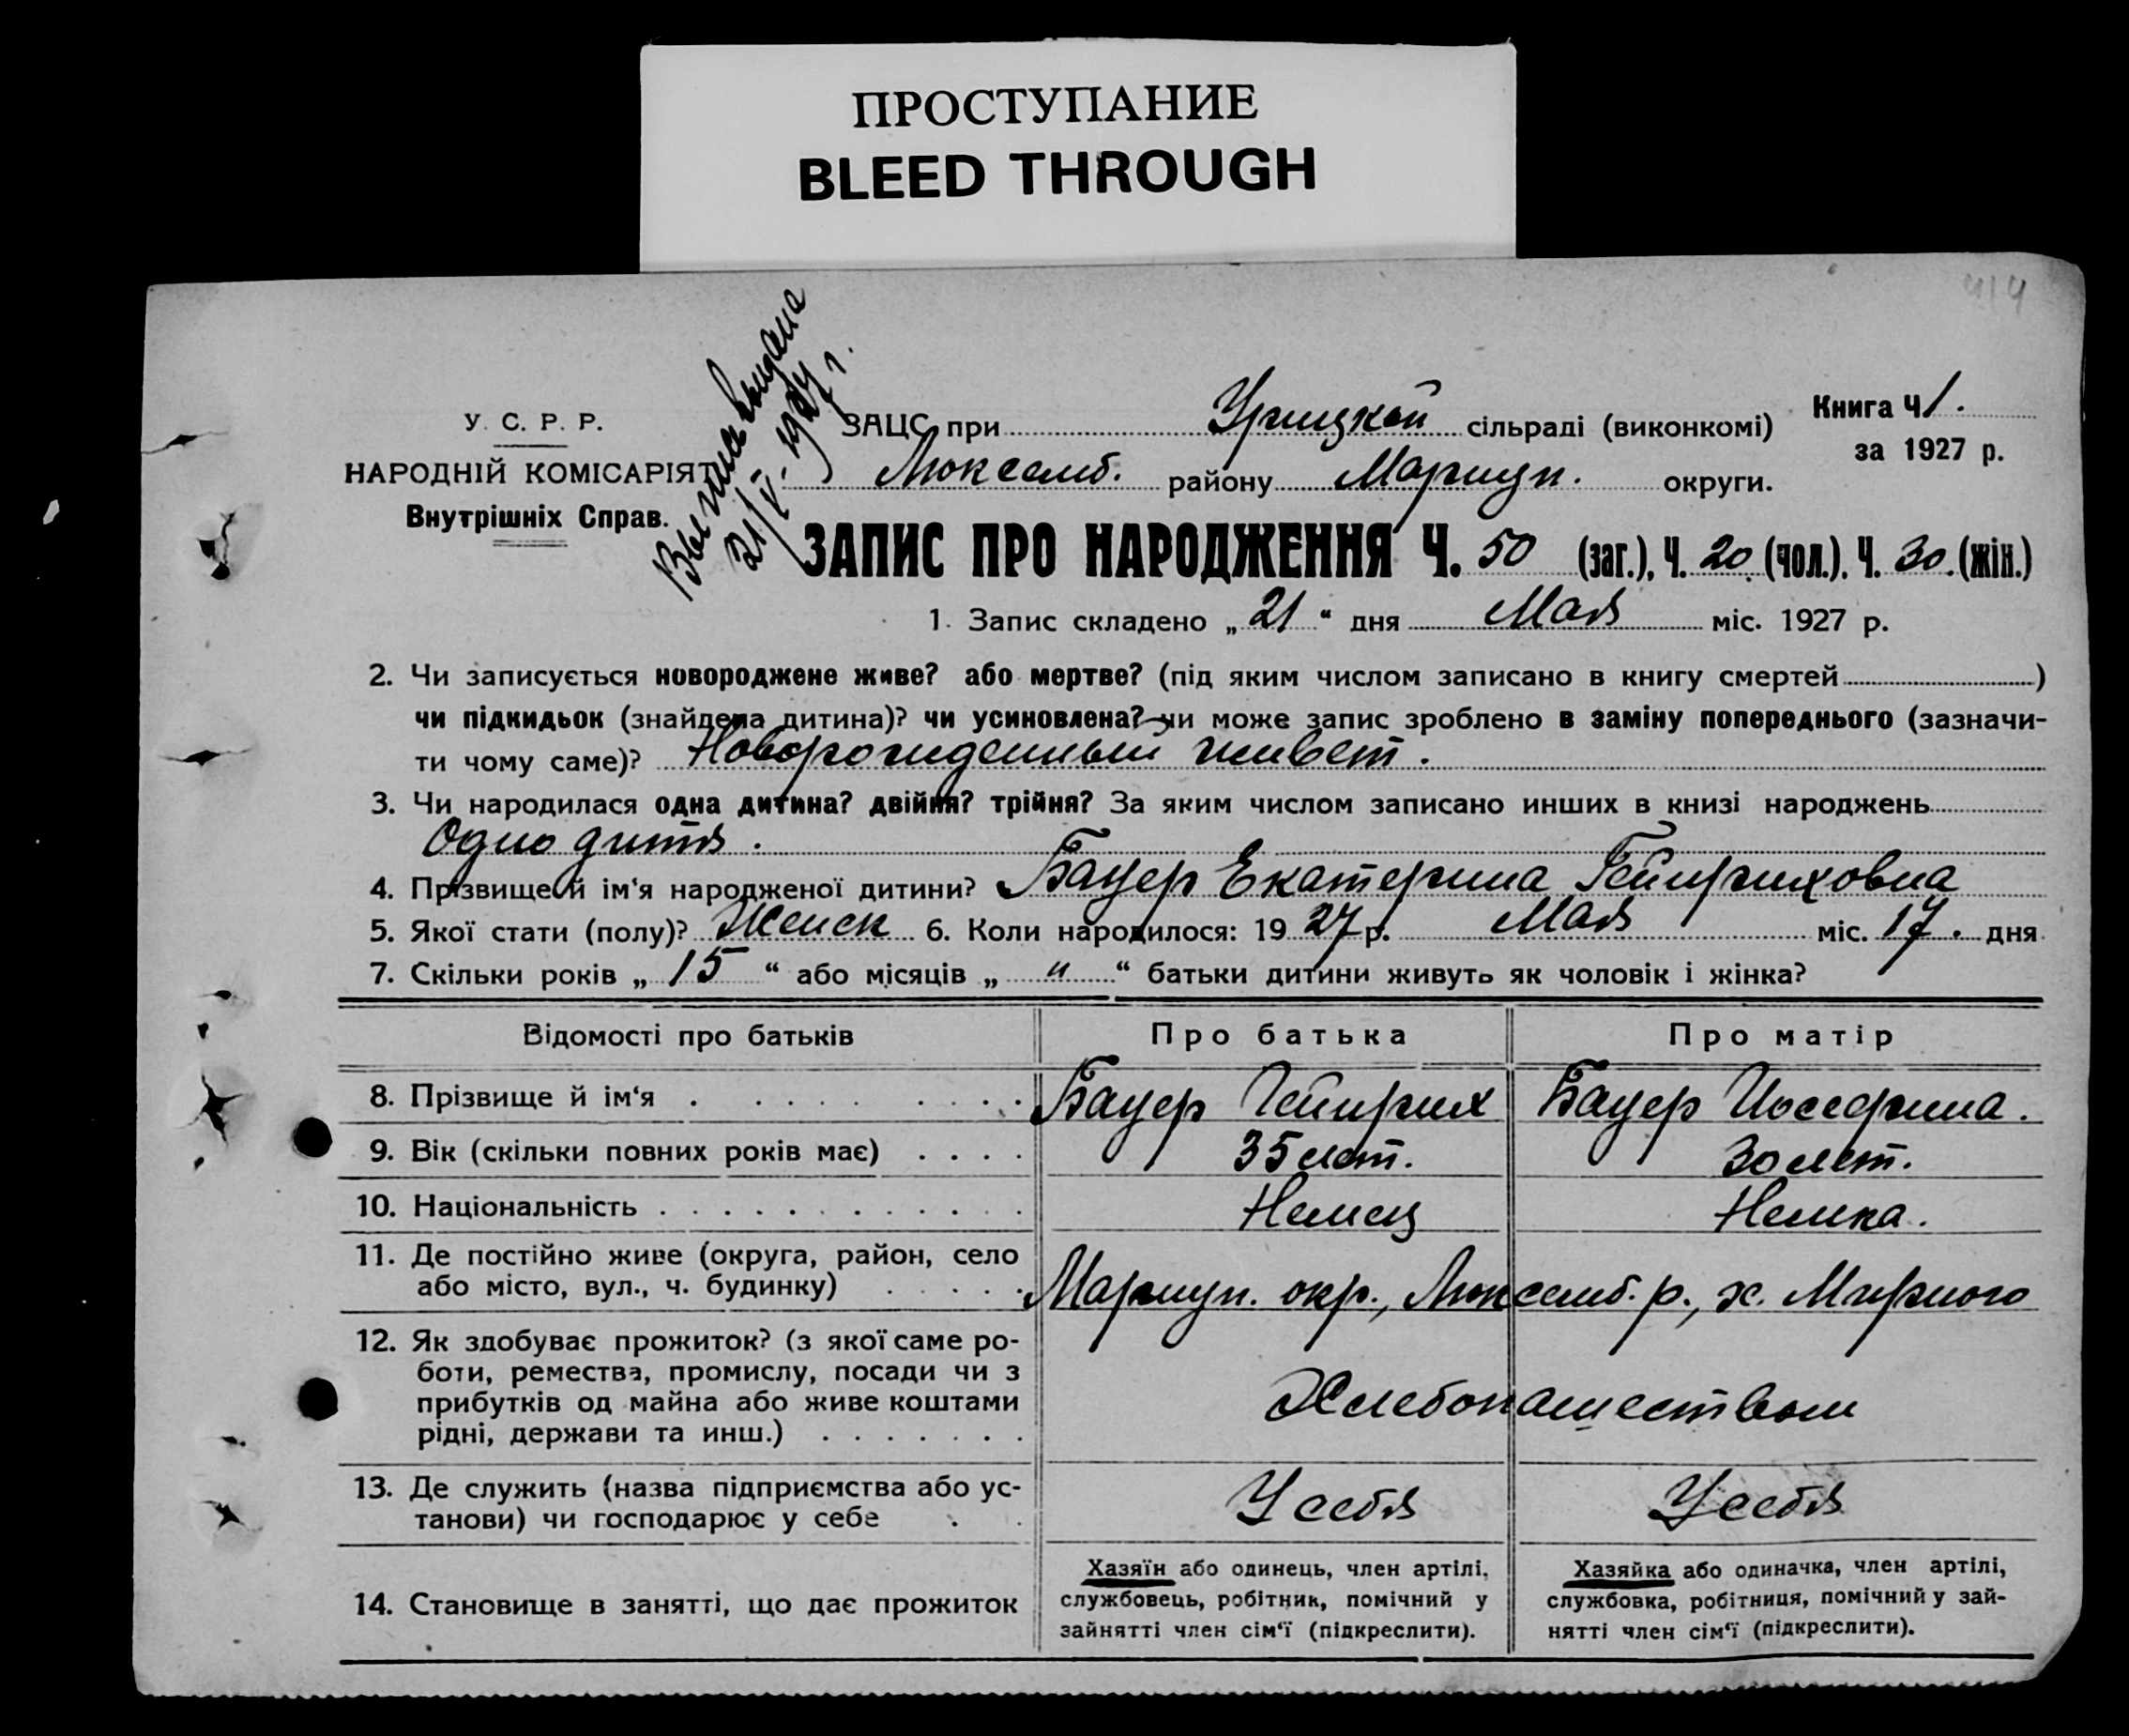 ПРОСТУПАНИЕ
BLEED THROUGH
414
Выпись выдана
21/V-1927 г.
У. С. Р. Р.
НАРОДНІЙ КОМІСАРІЯТ
Внутрішніх Справ.
ЗАЦС при Урицкой сільраді (виконкомі)
Люксемб. району Мариуп. округи.
Книга Ч 1.
за 1927 р.
ЗАПИС ПРО НАРОДЖЕННЯ Ч. 50 (заг.), Ч. 20 (чол.). Ч. 30. (жін.)
1. Запис складено „ 21 “ дня Мая міс. 1927 р.
2. Чи записується новороджене живе? або мертве? (під яким числом записано в книгу смертей )
чи підкидьок (знайдена дитина)? чи усиновлена? чи може запис зроблено в заміну попереднього (зазначи-
ти чому саме)? Новорожденный живет.
3. Чи народилася одна дитина? двійня? трійня? За яким числом записано инших в книзі народжень
Одно дитя.
4. Прізвище й ім‘я народженої дитини? Бауер Екатерина Гейнриховна
5. Якої стати (полу)? Женск 6. Коли народилося: 19 27 р. Мая міс. 17. дня
7. Скільки років „ 15 “ або місяців „ „ “ батьки дитини живуть як чоловік і жінка?
Відомості про батьків Про батька Про матір
8. Прізвище й ім‘я Бауер Гейнрих Бауер Иосефина.
9. Вік (скільки повних років має) 35 лет. 30 лет.
10. Національність Немец Немка.
11. Де постійно живе (округа, район, село
або місто, вул., ч. будинку) Мариуп. окр., Люксемб. р., х. Мирного
12. Як здобуває прожиток? (з якої саме ро-
боти, ремества, промислу, посади чи з
прибутків од майна або живе коштами
рідні, держави та инш.) Хлебопашеством
13. Де служить (назва підприємства або ус-
танови) чи господарює у себе У себя У себя
14. Становище в занятті, що дає прожиток
Хазяїн або одинець, член артілі,
службовець, робітник, помічний у
зайнятті член сім‘ї (підкреслити).
Хазяйка або одиначка, член артілі,
службовка, робітниця, помічний у зай-
нятті член сім‘ї (підкреслити).